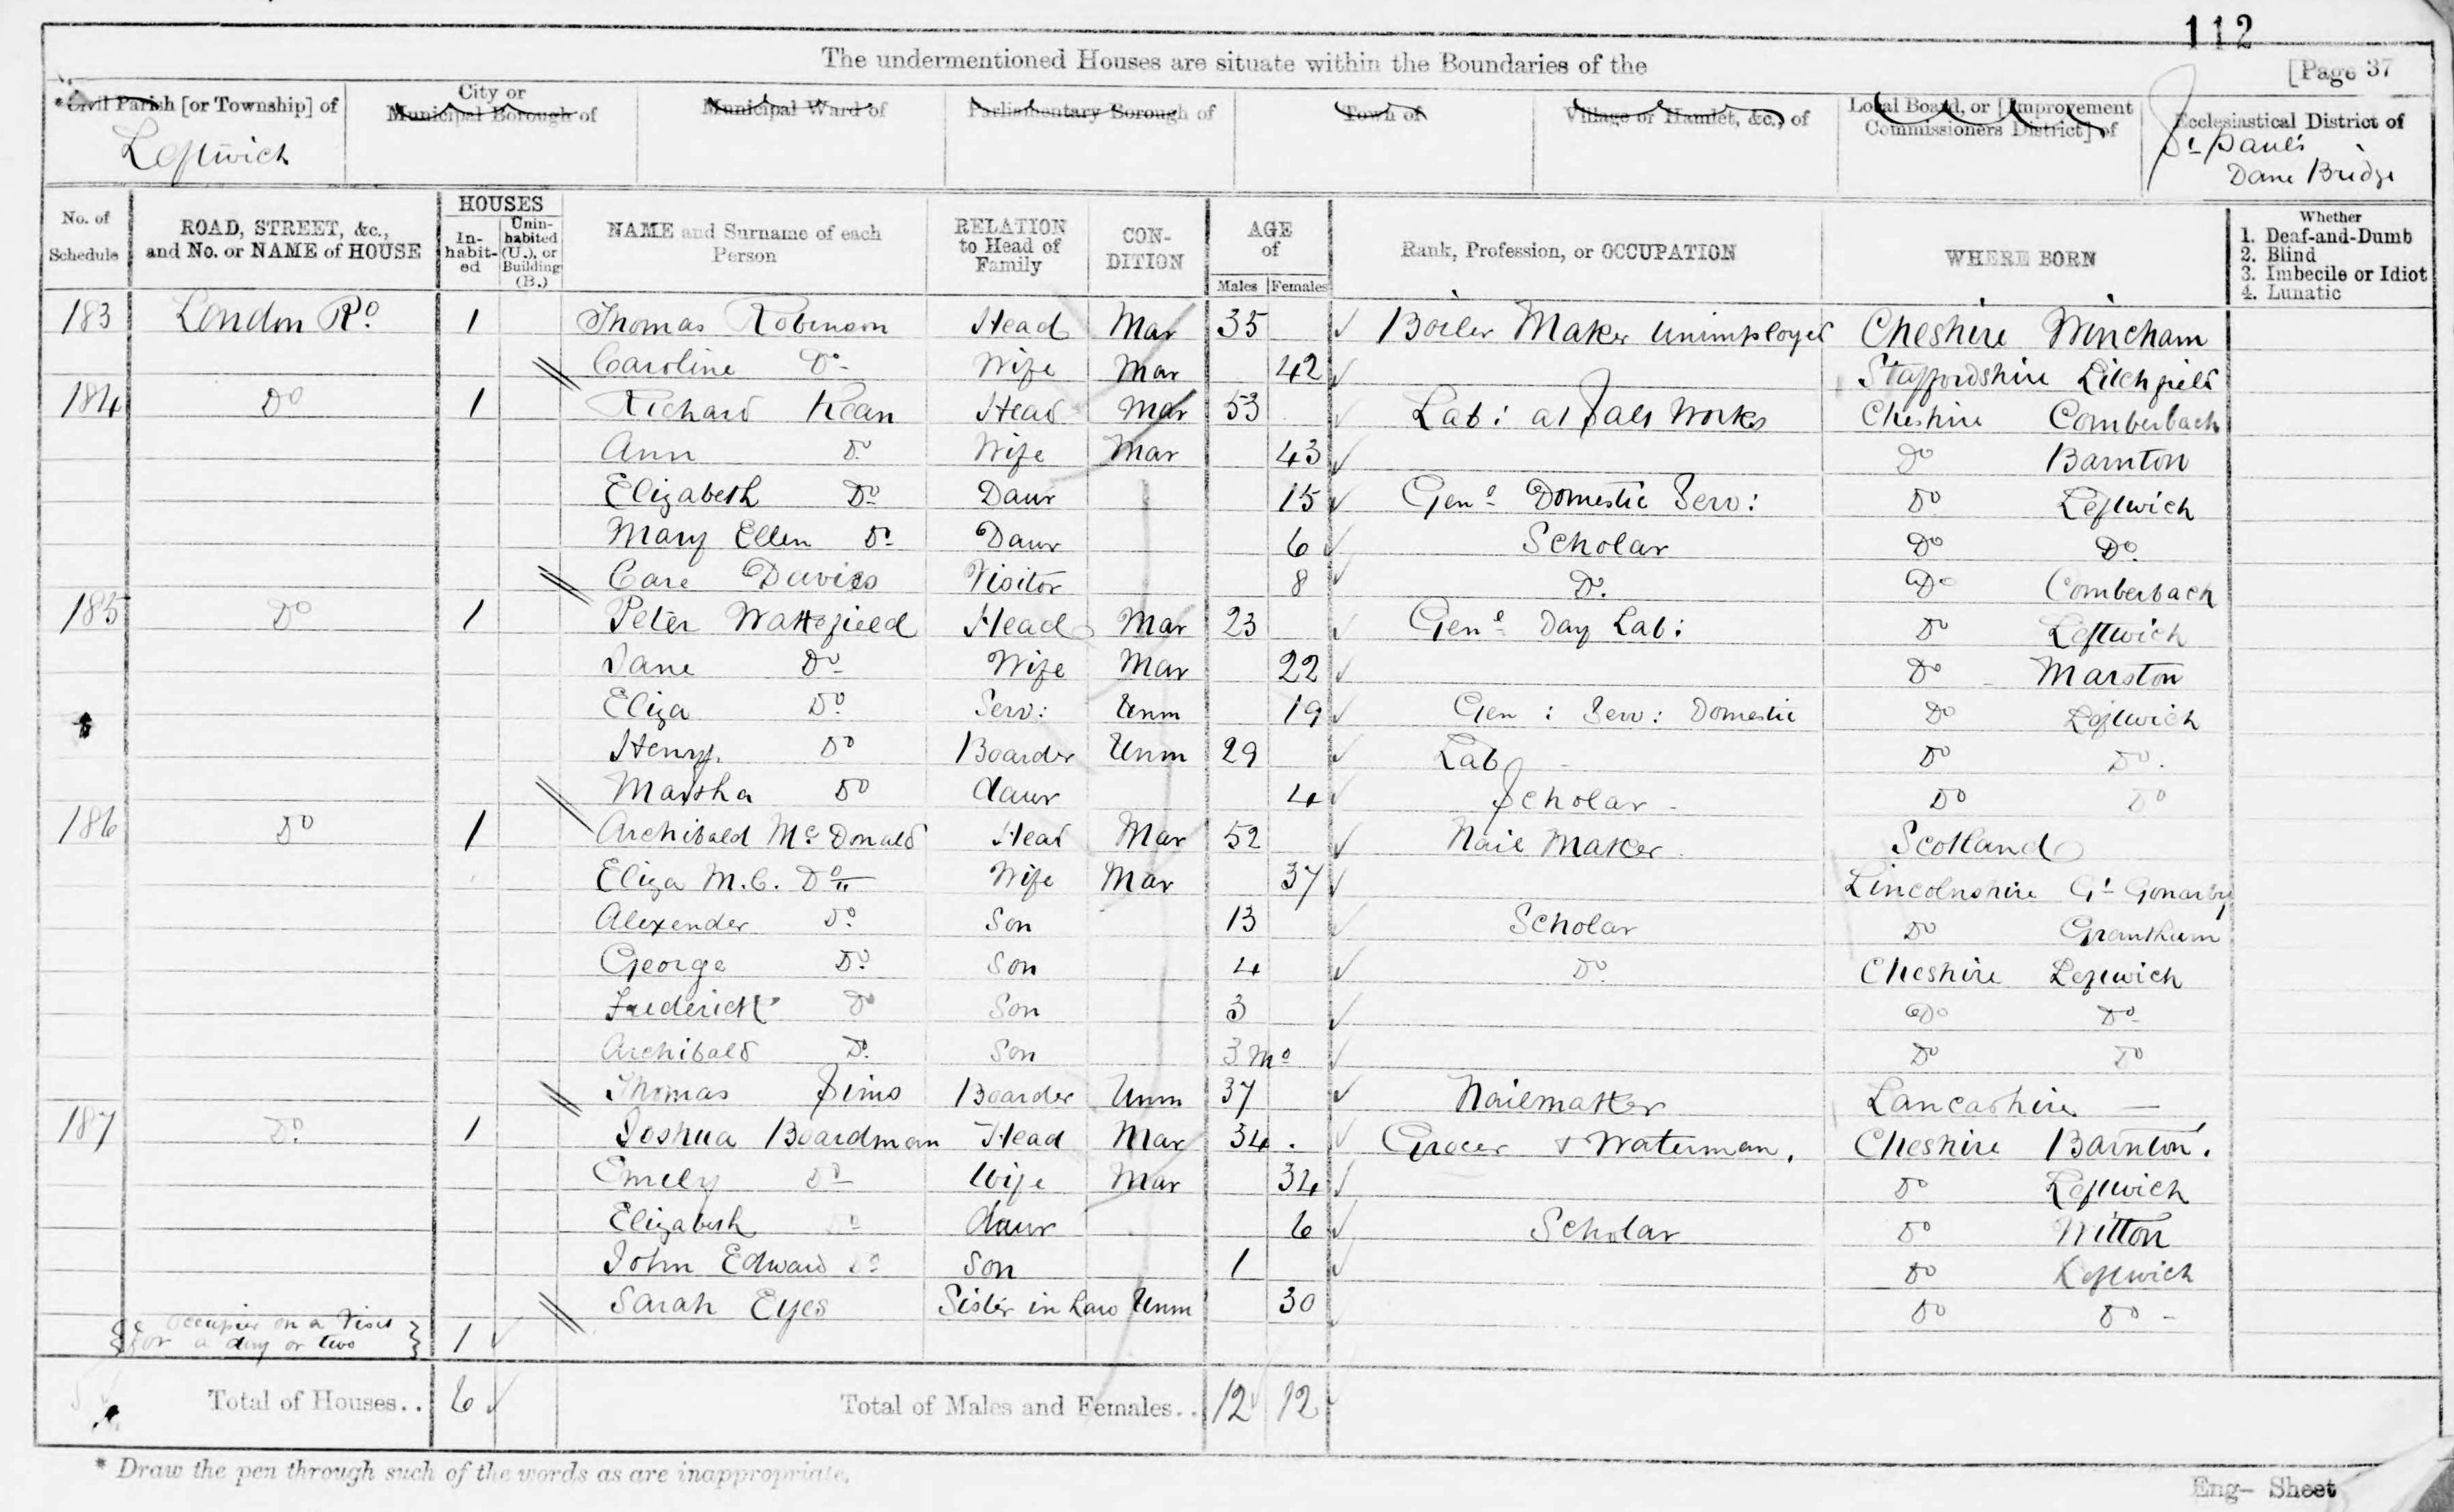 112
The undermentioned Houses are situate within the Boundaries of the
[Page 37
*Civil Parish [or Township] of
Leftwich
City or
Municipal Borough of
Municipal Ward of
Parliamentary Borough of
Town of
Village or Hamlet, &c., of
Local Board, or [Improvement
Commissioners District] of
Ecclesiastical District of
St Paul's
Dane Bridge
No. of
Schedule
ROAD, STREET, &c.,
and No. or NAME of HOUSE
HOUSES
In-
habit-
ed
Unin-
habited
(U.), or
Building
(B.)
NAME and Surname of each
Person
RELATION
to Head of
Family
CON-
DITION
AGE
of
Males Females
Rank, Profession, or OCCUPATION
WHERE BORN
Whether
1. Deaf-and-Dumb
2. Blind
3. Imbecile or Idiot
4. Lunatic
183 London Rd 1 Thomas Robinson Head Mar 35 Boiler Maker Unimployed Cheshire Wincham
Caroline Do Wife Mar 42 Staffordshire Litchfield
184 Do 1 Richard Kean Head Mar 53 Lab: at Salt Works Cheshire Comberbach
Ann Do Wife Mar 43 Do Barnton
Elizabeth Do Daur 15 Genl Domestic Serv: Do Leftwich
Mary Ellen Do Daur 6 Scholar Do Do
Davies Visitor 8 Do Do Comberbach
185 Do 1 Peter Head Mar 23 Genl Day Lab: Do Leftwich
Jane Do Wife Mar 22 Do Marston
Eliza Do Serv: Unm 19 Gen: Serv: Domestic Do Leftwich
Henry Do Boarder Unm 29 Lab Do Do
Marsha Do daur 4 Scholar Do Do
186 Do 1 Archibald Mc Donald Head Mar 52 Nail Maker Scotland
Eliza M.C. Do Wife Mar 37 Lincolnshire Gt Gonarby
Alexender Do Son 13 Scholar Do Grantham
George Do Son 4 Do Cheshire Leftwich
Frederick Do Son 3 Do Do
Archibald Do Son 3 Mo Do Do
Thomas Sims Boarder Unm 37 Nailmaker Lancashire —
187 Do 1 Joshua Boardman Head Mar 34 Grocer & Waterman. Cheshire Barnton.
Emily Do Wife Mar 34 Do Leftwich
Elizabeth Do daur 6 Scholar Do Witton
John Edward Do Son 1 Do Leftwich
Sarah Eyes Sister in Law Unm 30 Do Do
{ Occupier on a Visit
for a day or two } 1
Total of Houses.. 6 Total of Males and Females.. 12 12
* Draw the pen through such of the words as are inappropriate.
Eng- Sheet